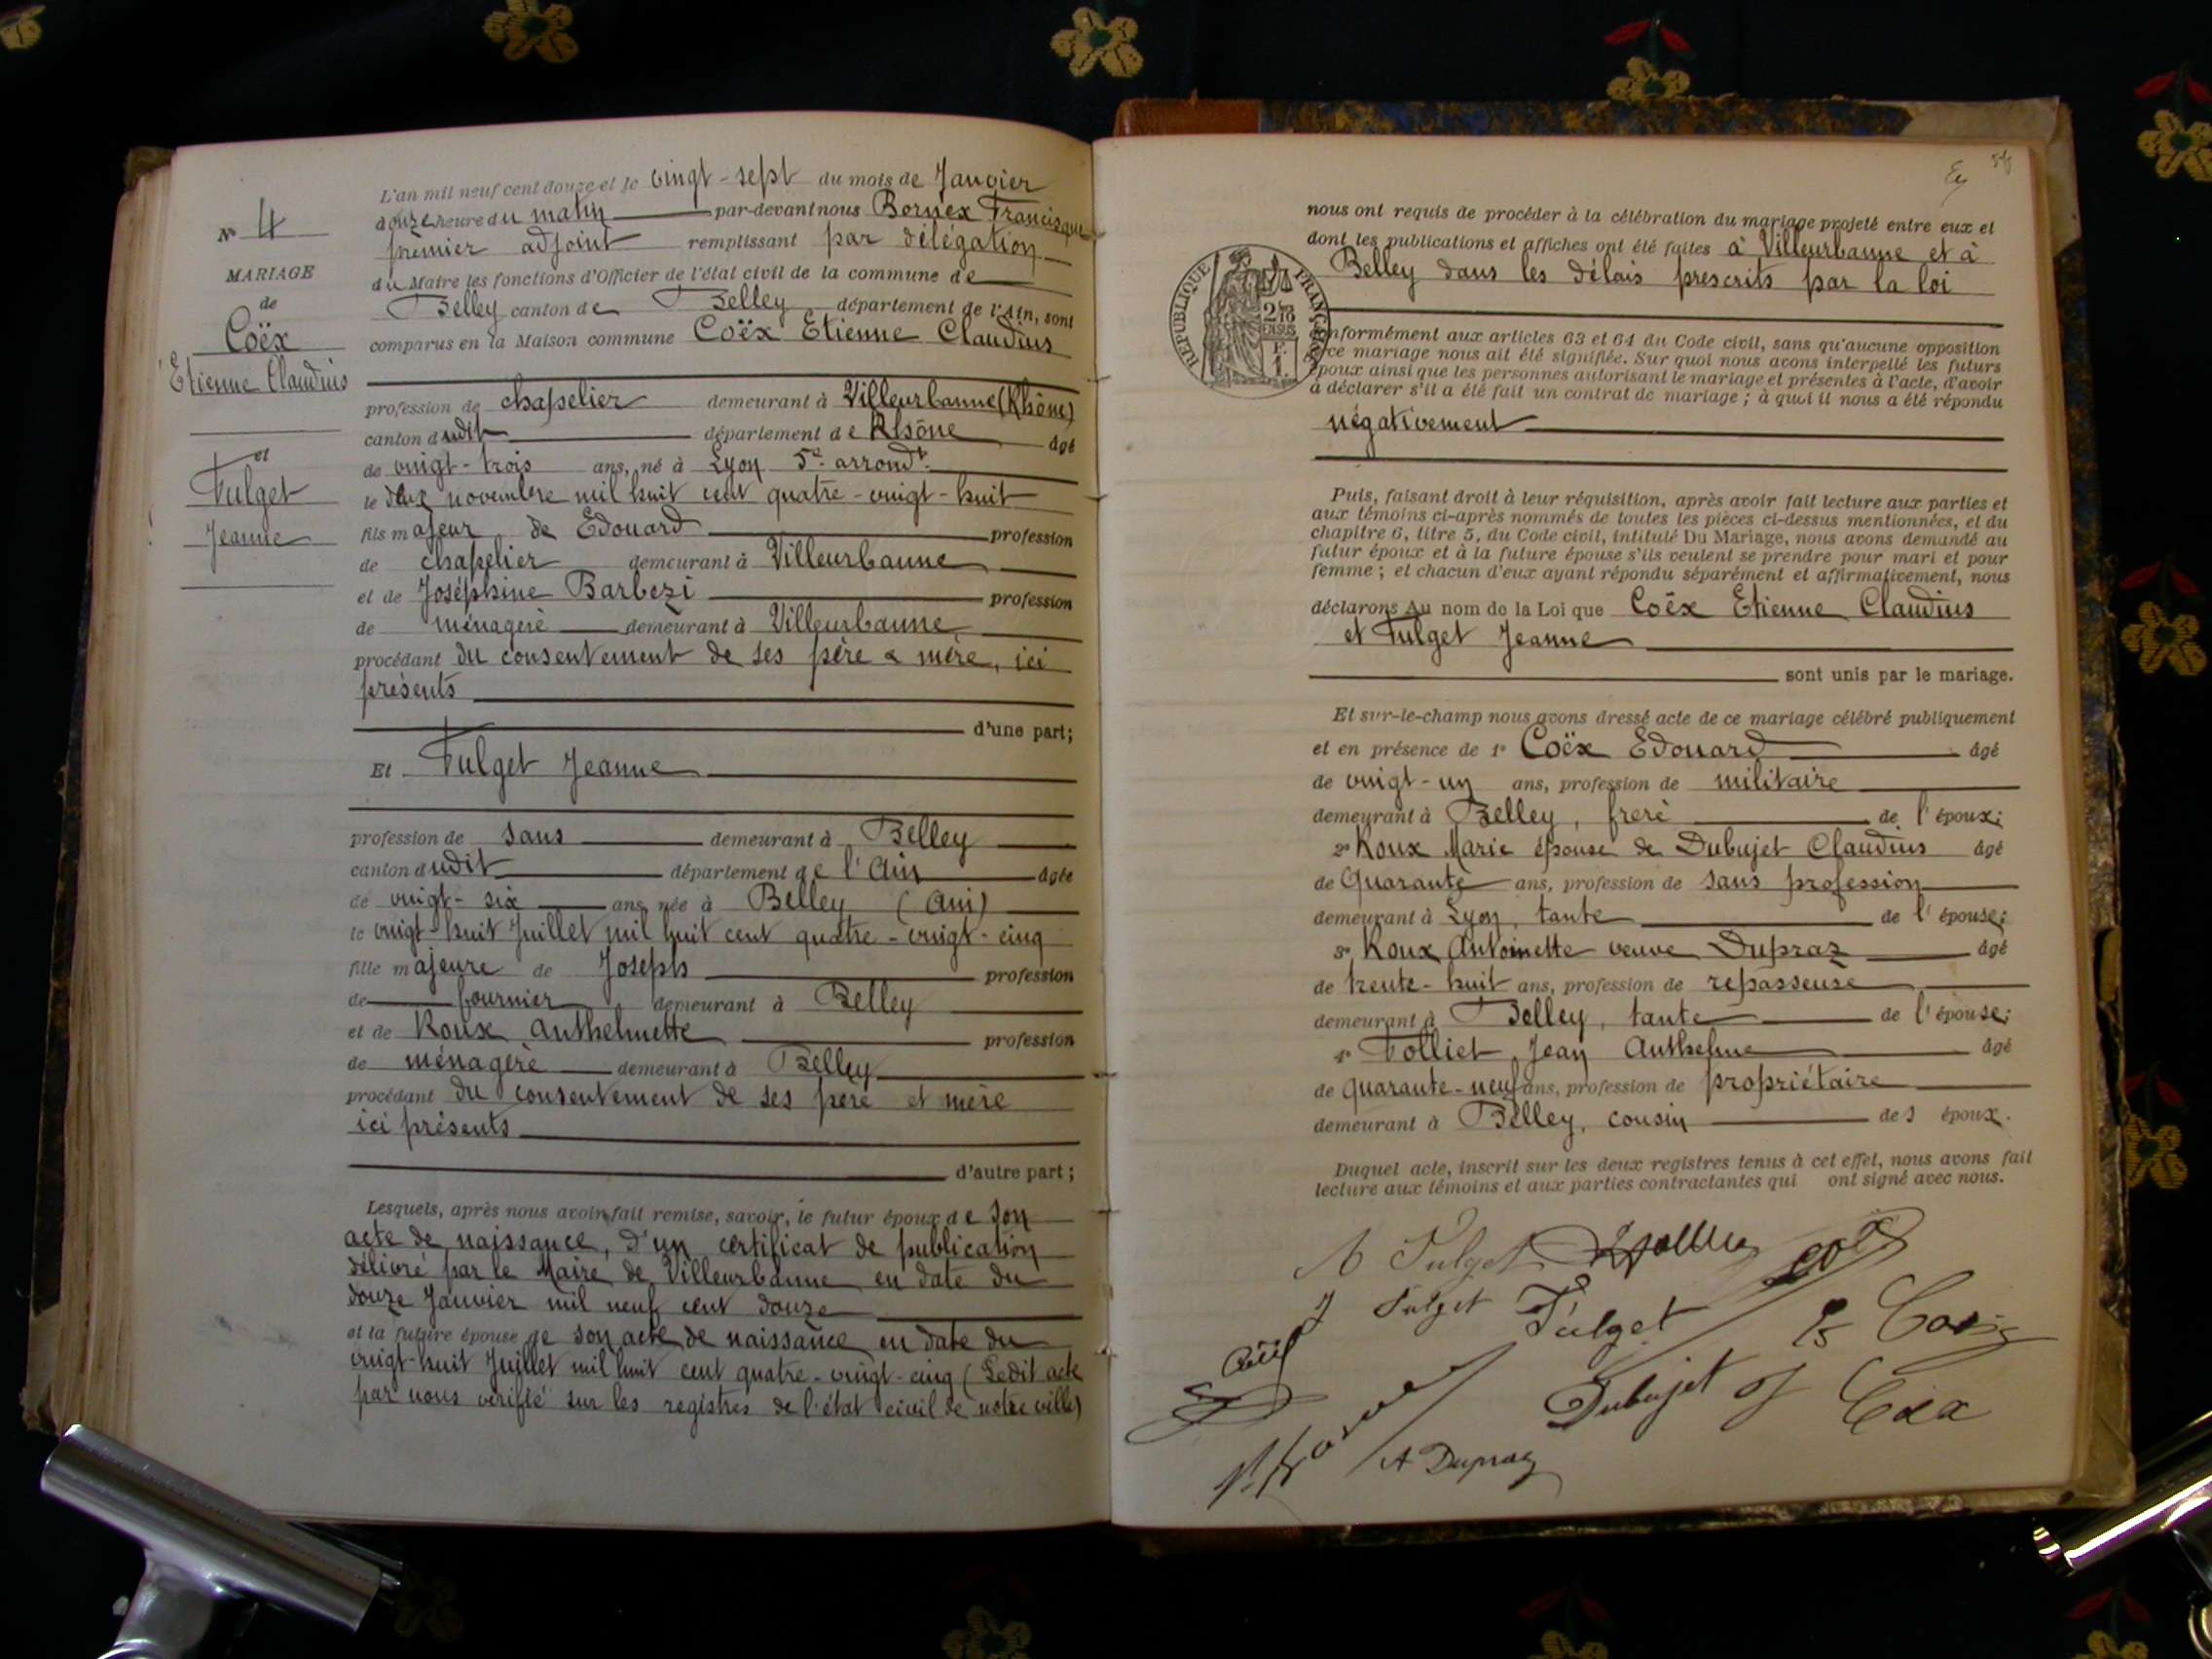 L'an mil neuf cent douze et le vingt-sept du mois de Janvier
douze heure du matin par-devant nous Bornex Francisque
premier adjoint remplissant par délégation
du Maire les fonctions d'Officier de l'état civil de la commune de
Belley canton de Belley département de l'Ain, sont
comparus en la Maison commune Coëx Etienne Claudius
profession de chapelier demeurant à Villeurbanne (Rhône)
canton dudit département de Rhône âgé
de vingt-trois ans, né à Lyon 5e arrondt
le deux novembre mil huit cent quatre-vingt-huit
fils majeur de Edouard profession
de chapelier demeurant à Villeurbanne
et de Joséphine Barbezi profession
de ménagère demeurant à Villeurbanne
procédant du consentement de ses père & mère, ici
présents
d'une part;
Et Tulget Jeanne
profession de sans demeurant à Belley
canton dudit département de l'Ain âgée
de vingt-six ans, née à Belley (Ain)
le vingt-huit Juillet mil huit cent quatre-vingt-cinq
fille majeure de Joseph profession
de fournier demeurant à Belley
et de Roux Anthelmette profession
de ménagère demeurant à Belley
procédant du consentement de ses père et mère
ici présents
d'autre part;
Lesquels, après nous avoir fait remise, savoir, le futur époux de son
acte de naissance, d'un certificat de publication
délivré par le Maire de Villeurbanne en date du
douze Janvier mil neuf cent douze
et la future épouse de son acte de naissance en date du
vingt-huit Juillet mil huit cent quatre-vingt-cinq (Ledit acte
par nous vérifié sur les registres de l'état civil de notre ville)
N° 4
MARIAGE
de
Coëx
Etienne Claudius
et
Tulget
Jeanne
nous ont requis de procéder à la célébration du mariage projeté entre eux et
dont les publications et affiches ont été faites à Villeurbanne et à
Belley dans les délais prescrits par la loi
RÉPUBLIQUE FRANÇAISE
conformément aux articles 63 et 64 du Code civil, sans qu'aucune opposition
à ce mariage nous ait été signifiée. Sur quoi nous avons interpellé les futurs
époux ainsi que les personnes autorisant le mariage et présentes à l'acte, d'avoir
à déclarer s'il a été fait un contrat de mariage ; à quoi il nous a été répondu
négativement
Puis, faisant droit à leur réquisition, après avoir fait lecture aux parties et
aux témoins ci-après nommés de toutes les pièces ci-dessus mentionnées, et du
chapitre 6, titre 5, du Code civil, intitulé Du Mariage, nous avons demandé au
futur époux et à la future épouse s'ils veulent se prendre pour mari et pour
femme ; et chacun d'eux ayant répondu séparément et affirmativement, nous
déclarons Au nom de la Loi que Coëx Etienne Claudius
et Tulget Jeanne
sont unis par le mariage.
Et sur-le-champ nous avons dressé acte de ce mariage célébré publiquement
et en présence de 1° Coëx Edouard âgé
de vingt-un ans, profession de militaire
demeurant à Belley, frère de l'époux;
2° Roux Marie épouse de Dubujet Claudius âgé
de Quarante ans, profession de sans profession
demeurant à Lyon, tante de l'épouse;
3° Roux Antoinette veuve Dupraz âgé
de trente-huit ans, profession de repasseuse
demeurant à Belley, tante de l'épouse;
4° Tolliet Jean Anthelme âgé
de quarante-neuf ans, profession de propriétaire
demeurant à Belley, cousin des époux.
Duquel acte, inscrit sur les deux registres tenus à cet effet, nous avons fait
lecture aux témoins et aux parties contractantes qui ont signé avec nous.
Tulget
J Tulget Tulget
Dubujet
A Dupraz